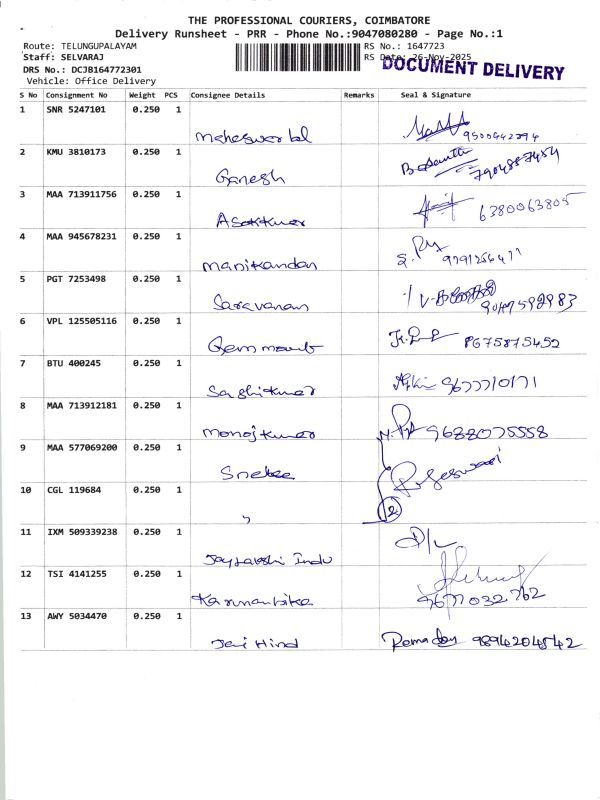 THE PROFESSIONAL COURIERS, COIMBATORE
Delivery Runsheet - PRR - Phone No.:9047080280 - Page No.:1
Route: TELUNGUPALAYAM RS No.: 1647723
Staff: SELVARAJ RS Date: 26-Nov-2025
DOCUMENT DELIVERY
DRS No.: DCJB164772301
Vehicle: Office Delivery
S No Consignment No Weight PCS Consignee Details Remarks Seal & Signature
1 SNR 5247101 0.250 1
9500442894
2 KMU 3810173 0.250 1
Ganesh 7904887484
3 MAA 713911756 0.250 1
Asokkumar 6380063805
4 MAA 945678231 0.250 1
manikandan 9791256477
5 PGT 7253498 0.250 1
Saravanan 9047592983
6 VPL 125505116 0.250 1
8675875452
7 BTU 400245 0.250 1
Sashikumar 9677710171
8 MAA 713912181 0.250 1
manojkumar 9688075558
9 MAA 577069200 0.250 1
10 CGL 119684 0.250 1
"
2
11 IXM 509339238 0.250 1
12 TSI 4141255 0.250 1
9677032762
13 AWY 5034470 0.250 1
Jai Hind 9894204542